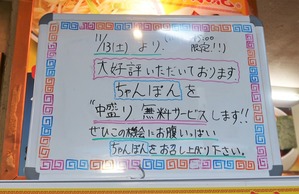 11/13(土)より、 15:00 限定!!)
大好評いただいております
ちゃんぽんを
"中盛り 無料サービスします!!
ぜひこの機会にお腹いっぱい
ちゃんぽんをお召し上がり下さい。